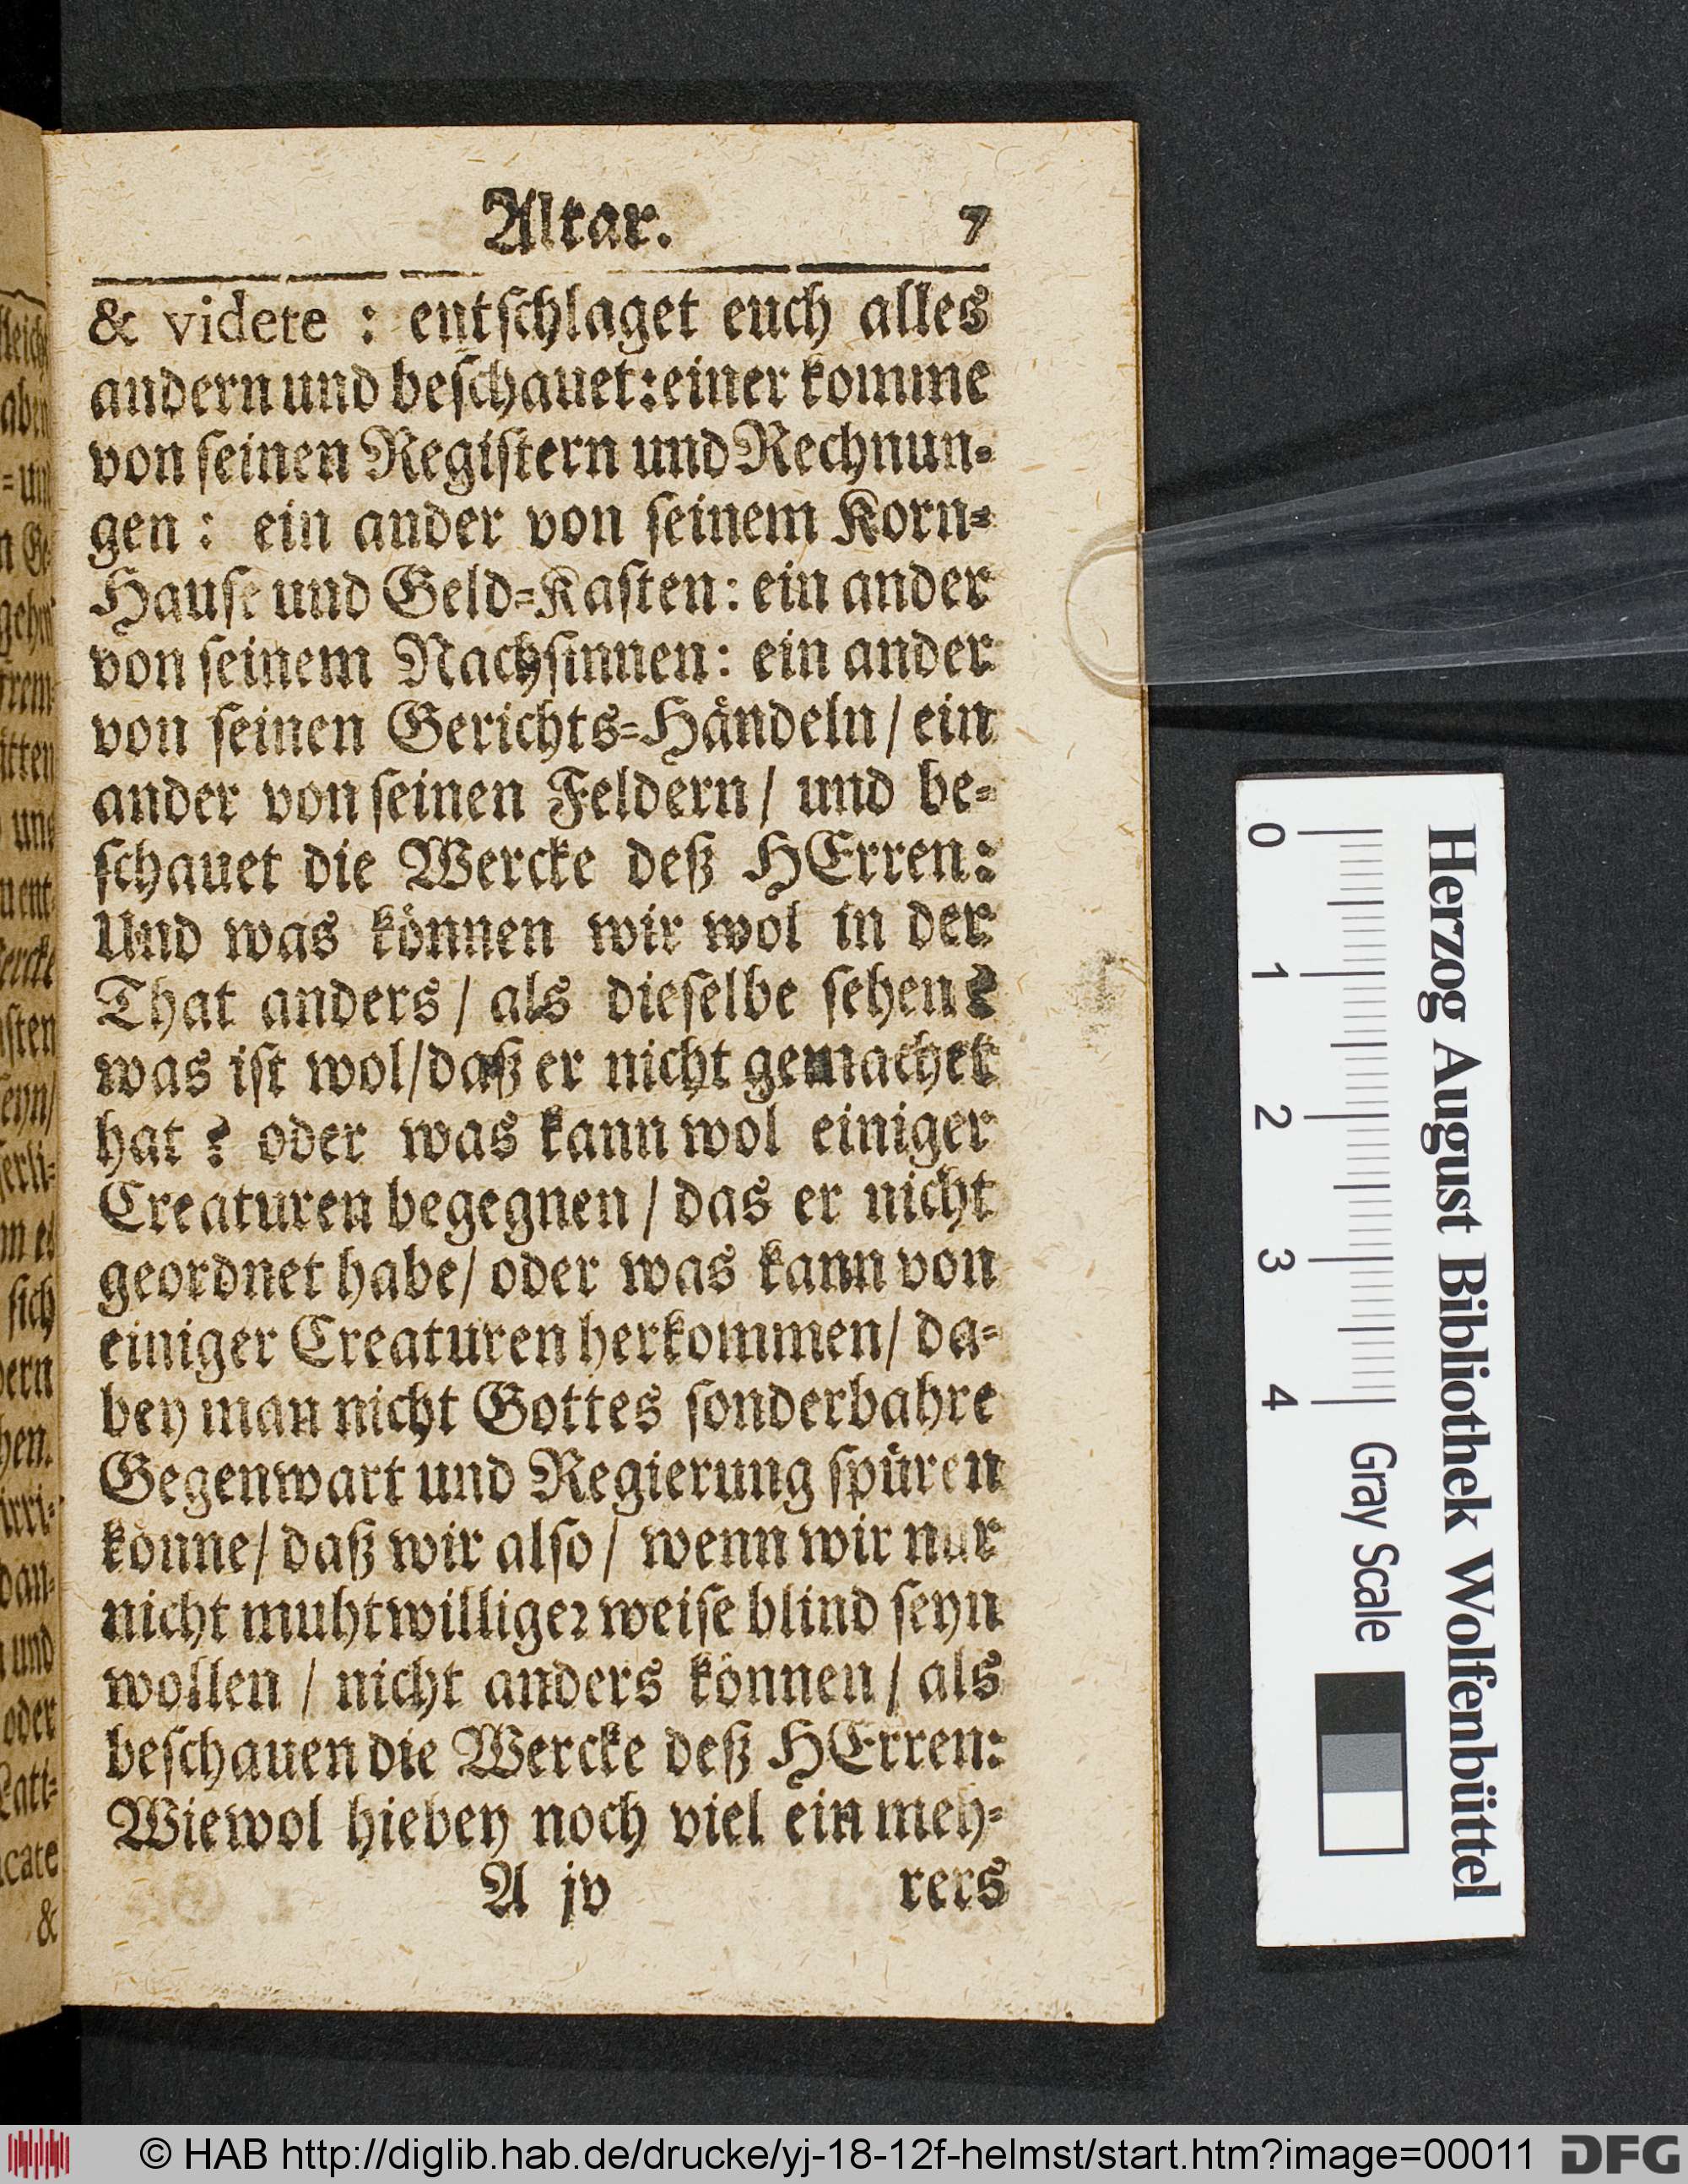 Altar. 7
& videte : entſchlaget euch alles
andern und beſchauet: einer komme
von ſeinen Regiſtern und Rechnun⸗
gen: ein ander von ſeinem Korn⸗
Hauſe und Geld⸗Kaſten: ein ander
von ſeinem Nachſinnen: ein ander
von ſeinen Gerichts⸗Händeln / ein
ander von ſeinen Feldern / und be⸗
ſchauet die Wercke deß HErren:
Und was können wir wol in der
That anders / als dieſelbe ſehen?
was iſt wol / daß er nicht gemachet
hat? oder was kann wol einiger
Creaturen begegnen / das er nicht
geordnet habe / oder was kann von
einiger Creaturen herkommen / da⸗
bey man nicht Gottes ſonderbahre
Gegenwart und Regierung ſpüren
könne / daß wir alſo / wenn wir nur
nicht muhtwilliger weiſe blind ſeyn
wollen / nicht anders können / als
beſchauen die Wercke deß HErren:
Wiewol hiebey noch viel ein meh⸗
A jv rers
Herzog August Bibliothek Wolfenbüttel
0 1 2 3 4 Gray Scale
© HAB http://diglib.hab.de/drucke/yj-18-12f-helmst/start.htm?image=00011 DFG